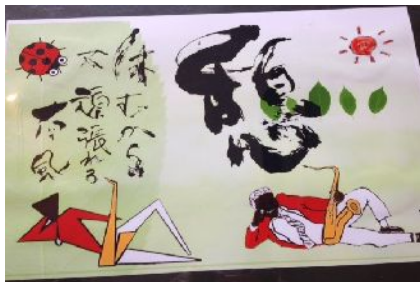 憩
休むから
又頑張れる